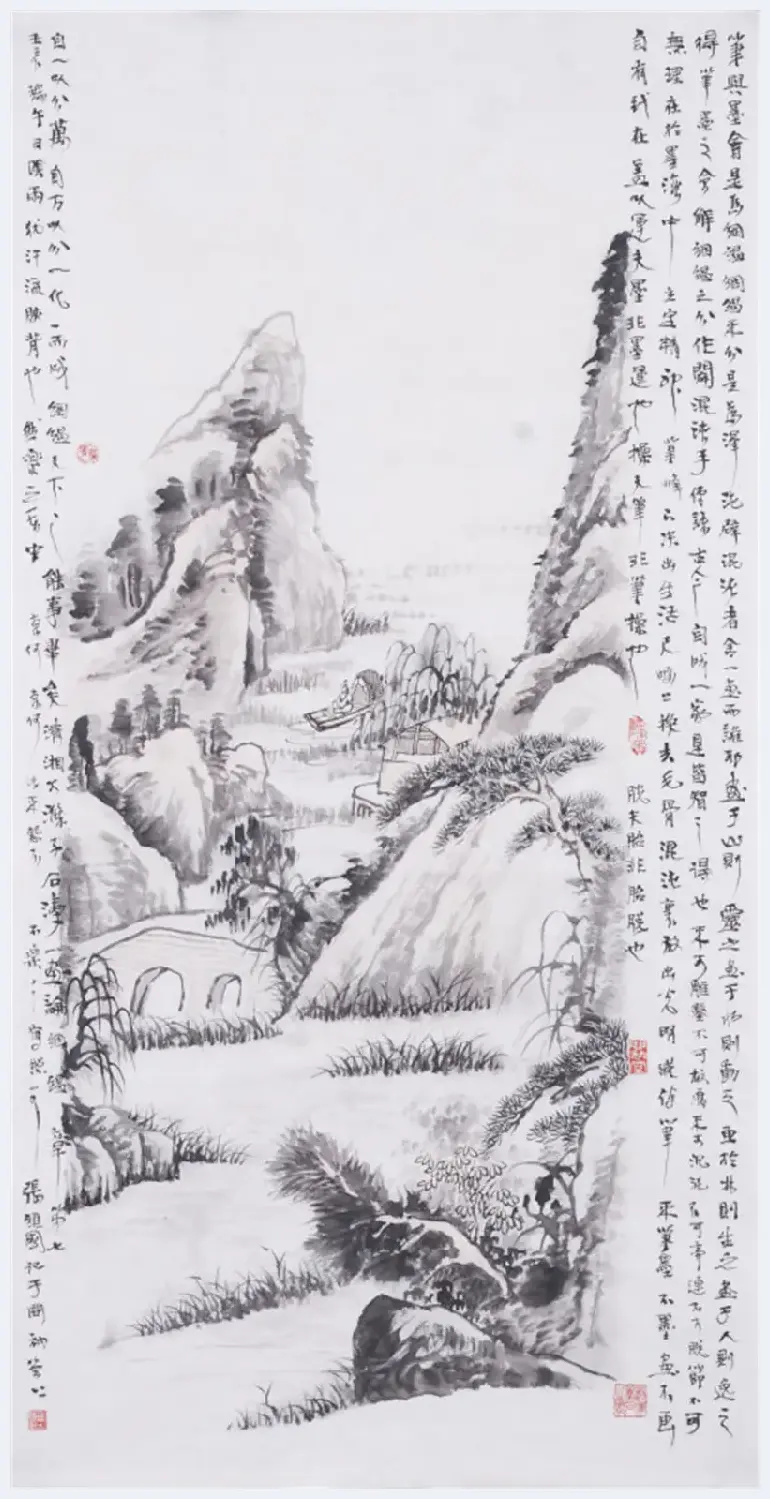 筆與墨會是為絪縕絪縕不分是為渾沌辟混沌者舍一畫而誰耶畫于山則靈之畫于水則動之畫於林則生之畫于人則逸之
得筆墨之會解絪縕之分作闢混沌手傳諸古今自成一家是皆智之得也不可雕鑿不可板腐不可沉泥不可牽連不可脫節不可
無理在於墨海中立定精神筆峰下決出生活尺幅上換去毛骨混沌裏放出光明縱使筆不筆墨不墨畫不画
自有我在蓋以運夫墨非墨運也操夫筆非筆操也脫夫胎非胎脫也
自一以分萬自万以分一化一而成絪縕天下之能事畢矣清湘大滌子石濤一畫論絪縕章第七
端午日陰雨汗濕騰背也奈何奈何張順國記于